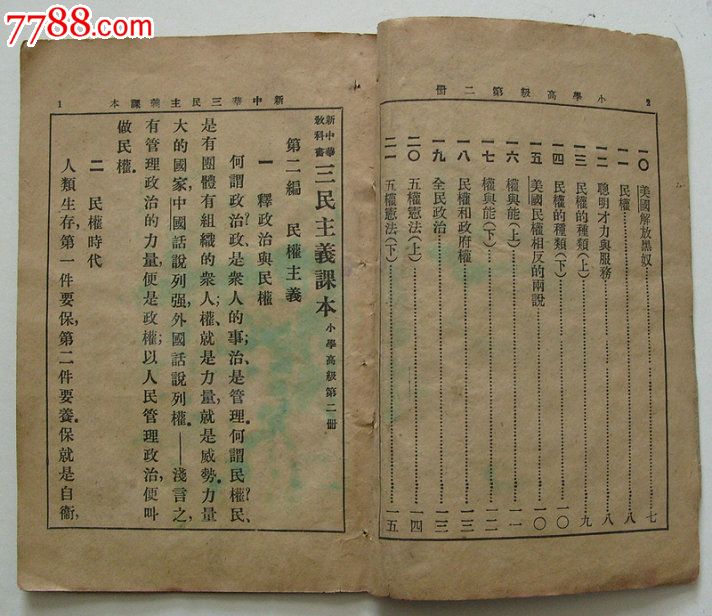 7788.com
小學高級第二冊
2
一〇 美國解放黑奴……七
一一 民權……八
一二 聰明才力與服務……八
一三 民權的種類(上)……九
一四 民權的種類(下)……一〇
一五 美國民權相反的兩說……一〇
一六 權與能(上)……一一
一七 權與能(下)……一二
一八 民權和政府權……一三
一九 全民政治……一三
二〇 五權憲法(上)……一四
二一 五權憲法(下)……一五
新中華三民主義課本
1
新中華教科書 三民主義課本 小學高級第二冊
第二編 民權主義
一 釋政治與民權
何謂政治?政是衆人的事;治是管理。何謂民權?民、
是有團體有組織的衆人;權就是力量,就是威勢。力量
大的國家,中國話說列强,外國話說列權——淺言之,
有管理政治的力量,便是政權;以人民管理政治,便叫
做民權。
二 民權時代
人類生存,第一件要保,第二件要養。保就是自衞,